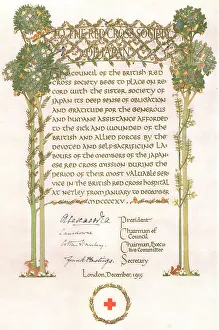 TO THE RED CROSS SOCIETY
OF JAPAN
THE COUNCIL OF THE BRITISH RED
CROSS SOCIETY BEGS TO PLACE ON RE
CORD WITH THE SISTER SOCIETY OF
JAPAN ITS DEEP SENSE OF OBLIGATION
AND GRATITUDE FOR THE GENEROUS
AND HUMANE ASSISTANCE AFFORDED
TO THE SICK AND WOUNDED OF THE
BRITISH AND ALLIED FORCES BY THE
DEVOTED AND SELF-SACRIFICING LA
BOURS OF THE MEMBERS OF THE JAPAN
ESE RED CROSS MISSION DURING THE
PERIOD OF THEIR MOST VALUABLE SER
VICE IN THE BRITISH RED CROSS HOSPITAL
AT NETLEY FROM JANUARY TO DECEMBER
MDCCCCXV.
Alexandra President
Lansdowne Chairman of
Council
Chairman, Execu
tive Committee
Secretary
London, December, 1915